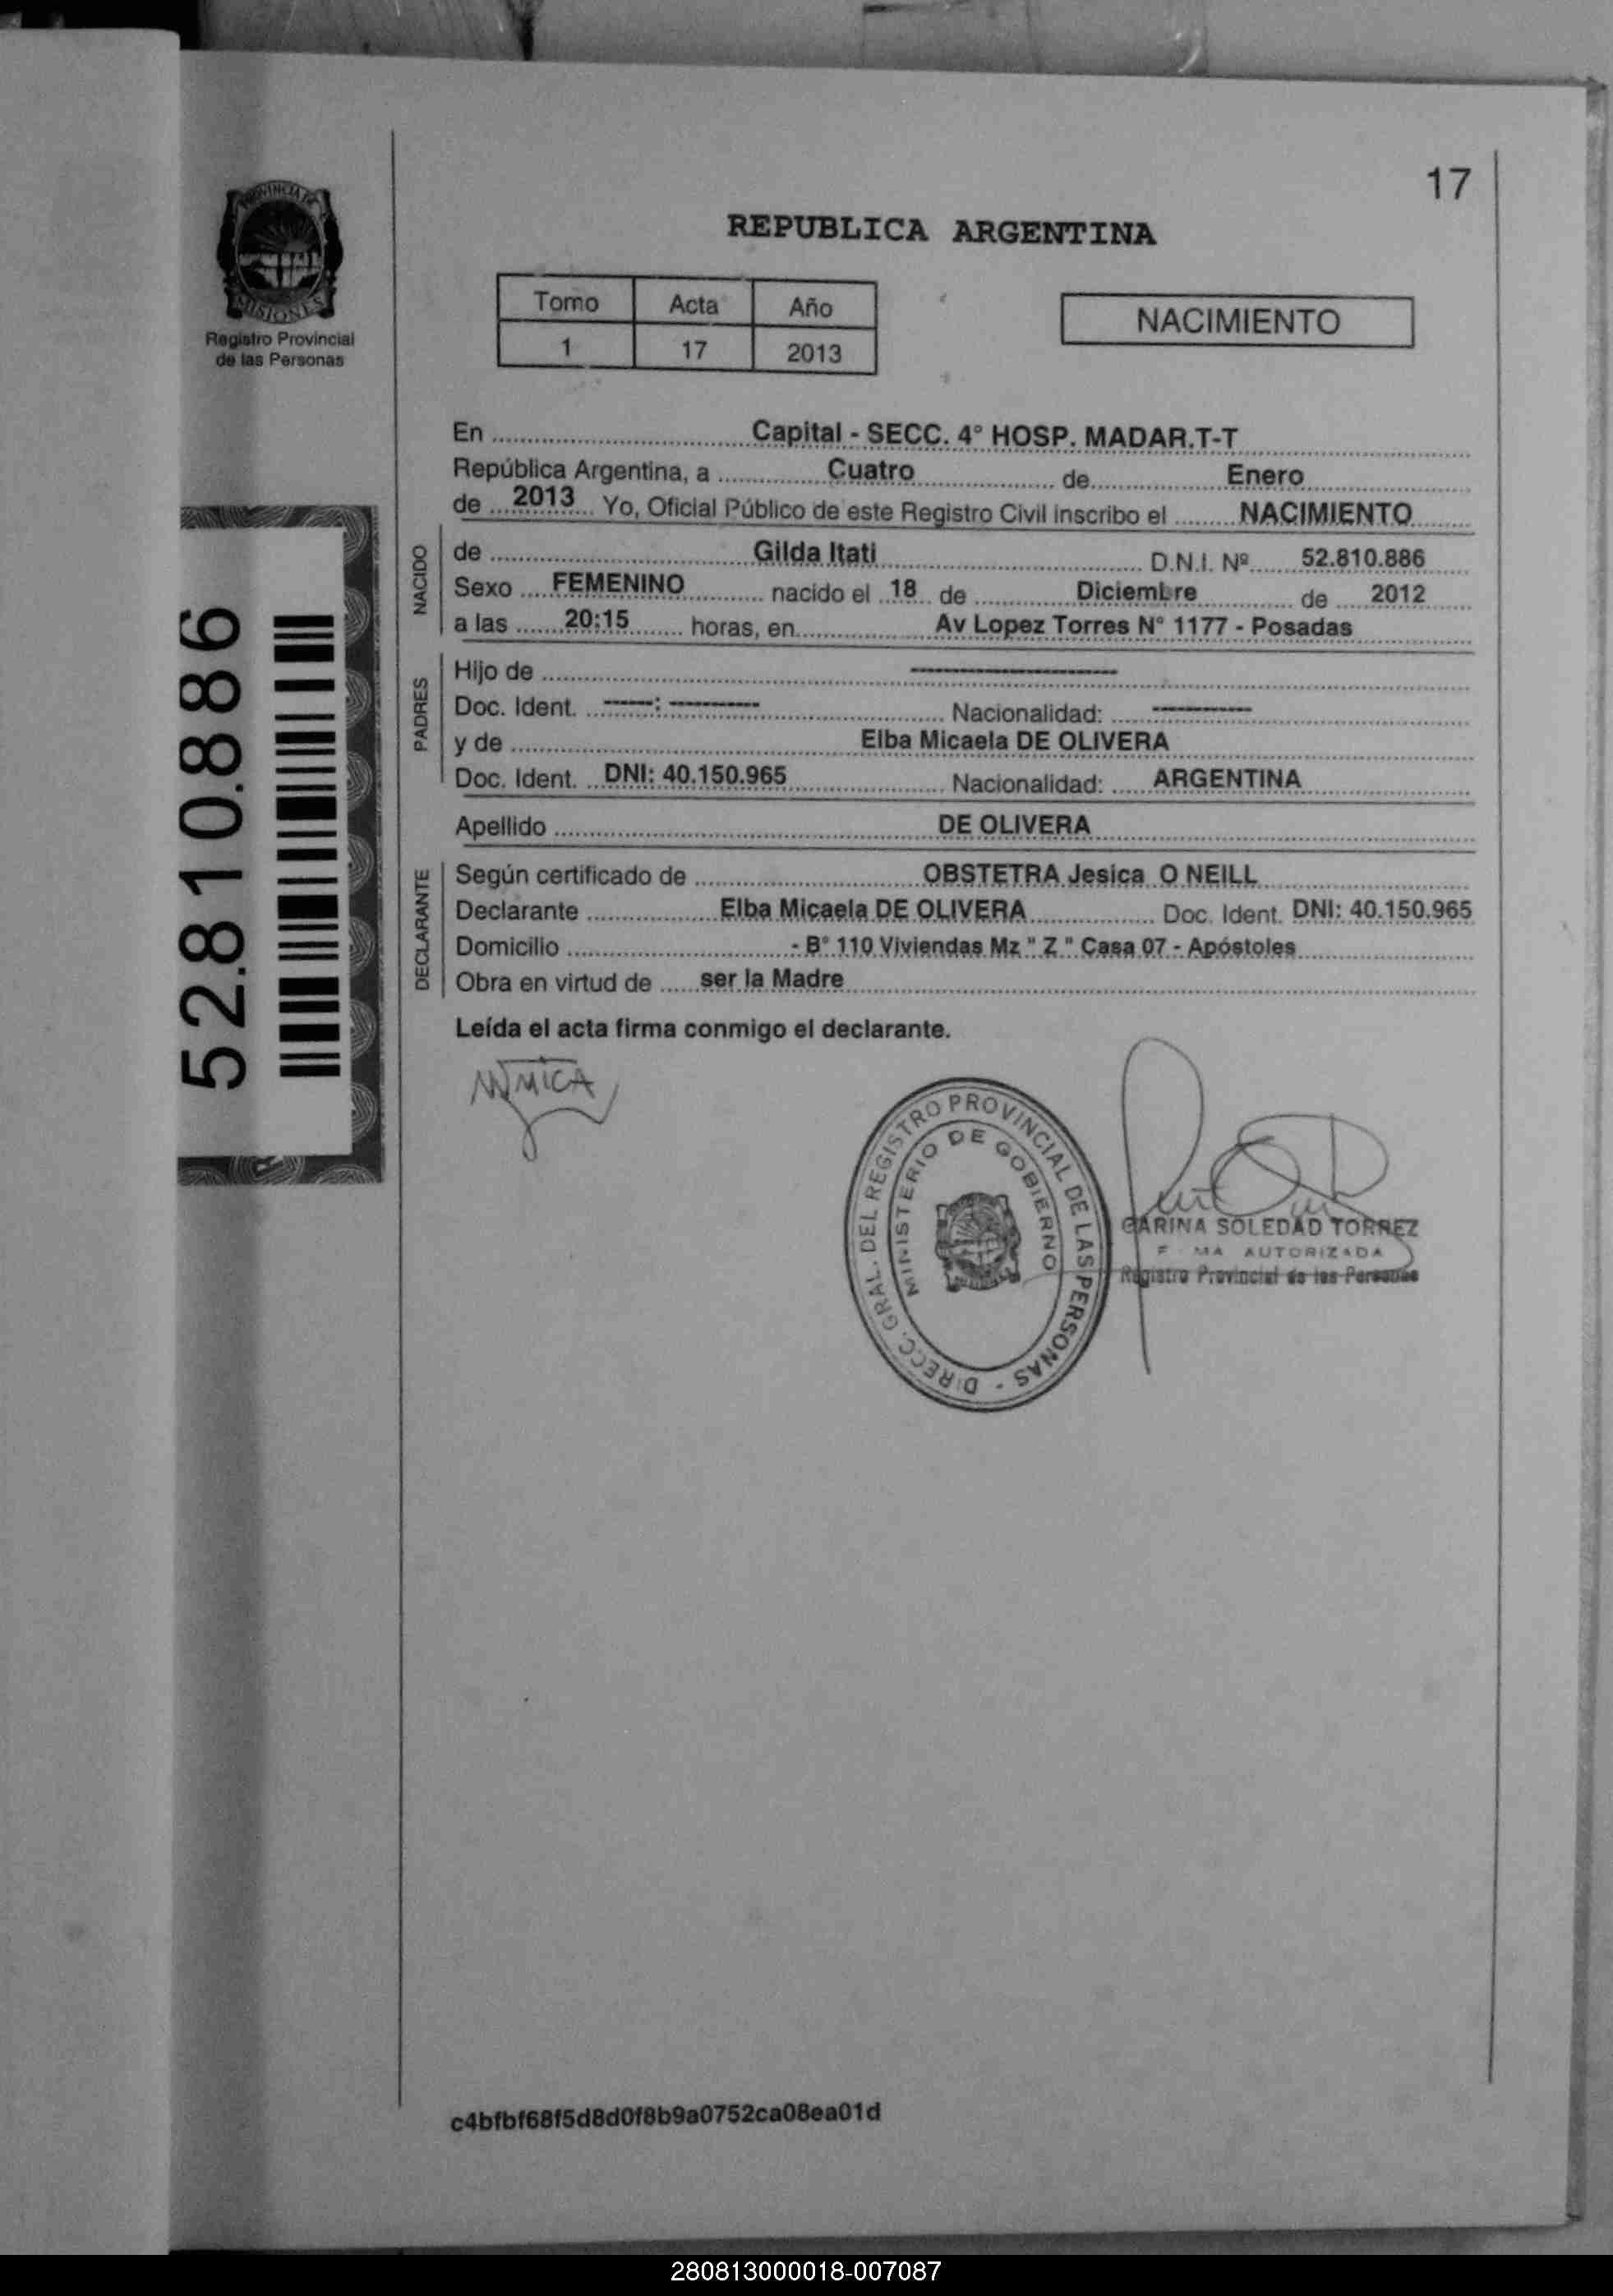 17
PROVINCIA DE
MISIONES
Registro Provincial
de las Personas
REPUBLICA ARGENTINA
Tomo Acta Año
1 17 2013
NACIMIENTO
En Capital - SECC. 4° HOSP. MADAR.T-T
República Argentina, a Cuatro de Enero
de 2013 Yo, Oficial Público de este Registro Civil inscribo el NACIMIENTO
NACIDO
de Gilda Itati D.N.I. Nº 52.810.886
Sexo FEMENINO nacido el 18 de Diciembre de 2012
a las 20:15 horas, en Av Lopez Torres N° 1177 - Posadas
PADRES
Hijo de ----------
Doc. Ident. ----: -------- Nacionalidad: --------
y de Elba Micaela DE OLIVERA
Doc. Ident. DNI: 40.150.965 Nacionalidad: ARGENTINA
Apellido DE OLIVERA
DECLARANTE
Según certificado de OBSTETRA Jesica O NEILL
Declarante Elba Micaela DE OLIVERA Doc. Ident. DNI: 40.150.965
Domicilio - B° 110 Viviendas Mz " Z " Casa 07 - Apóstoles
Obra en virtud de ser la Madre
Leída el acta firma conmigo el declarante.
52.810.886
DIRECC. GRAL. DEL REGISTRO PROVINCIAL DE LAS PERSONAS -
MINISTERIO DE GOBIERNO
CARINA SOLEDAD TORREZ
AUTORIZADA
Registro Provincial de las Personas
c4bfbf68f5d8d0f8b9a0752ca08ea01d
280813000018-007087